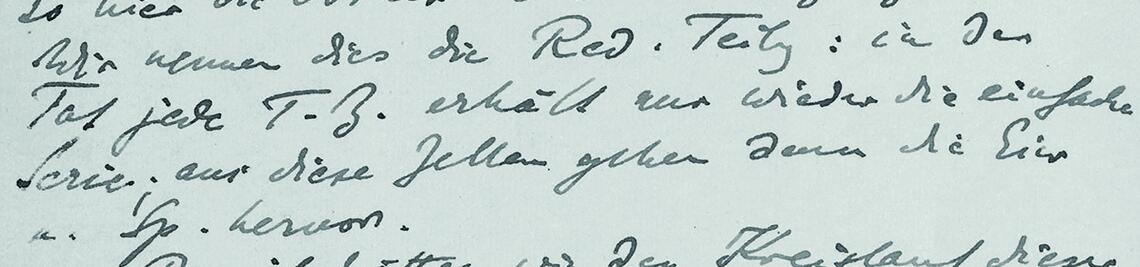 so hier die
Wir nennen dies die Red. Teilg : in der
Tat jede T-Z. erhält nur wieder die einfache
Serie; aus diese Zellen gehen dann die Eier
u. Sp. hervor.
wir den Kreislauf dieser